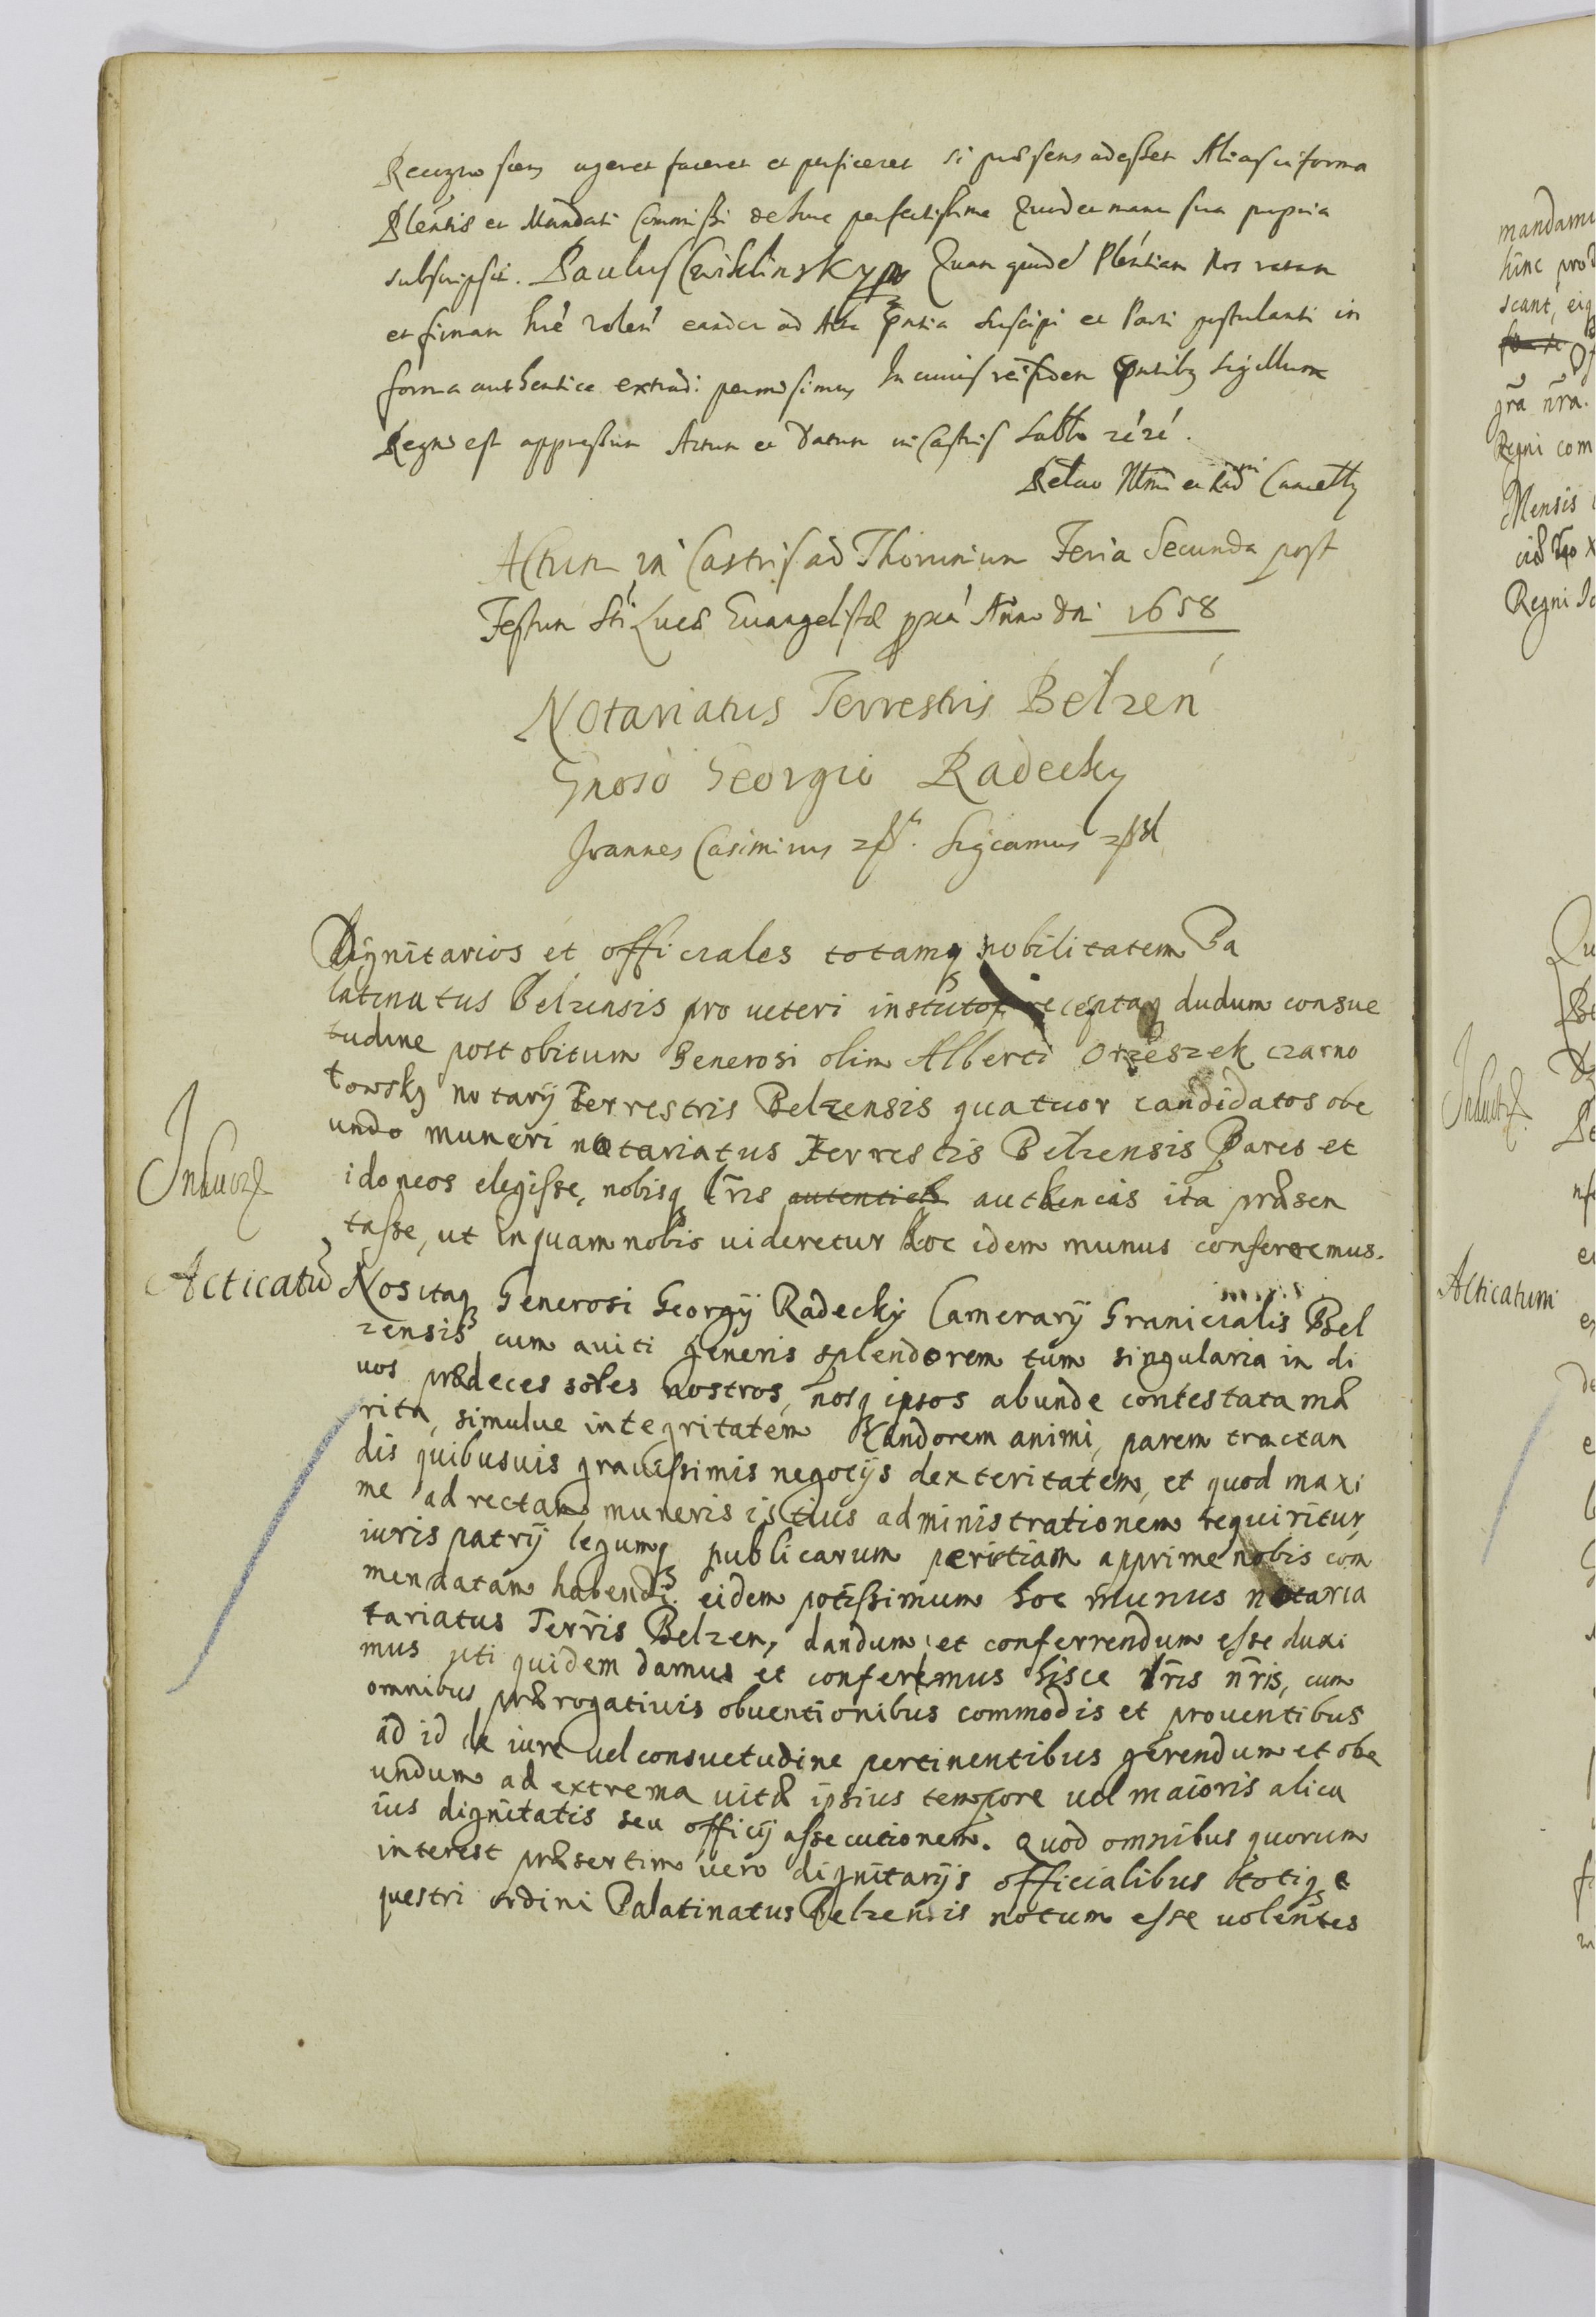 Recognoscens ageret faceret et perficeret si præsens adesset Alias in forma
Plentis et Mandati Commissi de hinc perfectissime Quod et manu sua propria
subscripsit. Paulus Cwiklinsky mp Quam quidē Plēntiam Nos ratam
et firmam hrē volen̄ eandem ad Acta pntia suscipi et Parti postulanti in
forma authentica extradi permisimus In cuius rei fidem pntibq sigillum
Regni est appressum Actum et Datum in Castris sabbo
Actum in Castris ad Thorunium Feria Secunda post
Festum Sti Lucæ Euangelistæ pxiā Anno Dni 1658
Notariatus Terrestris Belzen
Gnoso Georgio Radecky
Joannes Casimirus Sigcamus
Dignitarios et officiales totamq nobilitatem Pa
latinatus Belzensis pro ueteri instituto receptaq dudum consue
tudine post obitum Generosi olim Alberti Orzeszek czarno
towsky notarij Terrestris Belzensis quatuor candidatos obe
undo muneri notariatus Terrestis Belzensis Pares et
idoneos elegisse, nobisq lr̄is autenticis autkencis ita præsen
tasse, ut in quam nobis uideretur hoc idem munus conferremus.
Induct
Acticatū
Nos itaq Generosi Georgij Radecky Camerarij Granicialis Bel
zensis cum auiti generis splendorem tum singularia in di
uos prædecessores nostros, nosq ipsos abunde contestata mæ
rita, simulue integritatem Kandorem animi, parem tractan
dis quibusuis grauissimis negocijs dexteritatem, et quod maxi
me ad rectam muneris istius administrationem requiritur,
iuris patrij legumq publicarum peritiam apprime nobis com
mendatam habendo eidem potissimum hoc munus notaria
tariatus Terris Belzen, dandum et conferrendum esse duxi
mus uti quidem damus et conferimus hisce lr̄is nr̄is, cum
omnibus prærogatiuis obuentionibus commodis et prouentibus
ad id de iure uel consuetudine pertinentibus gerendum et obe
undum ad extrema uitæ ipsius tempore uel maioris alicu
ius dignitatis seu officij assecutionem. Quod omnibus quorum
interest præsertim uero dignitarijs officialibus totiq e
questri ordini Palatinatus Belzensis notum esse uolentes
mandamu
hinc prod
scant, eiq
gr̄a nr̄a.
Regni com
Mensis
Regni
Induct
Acticatum